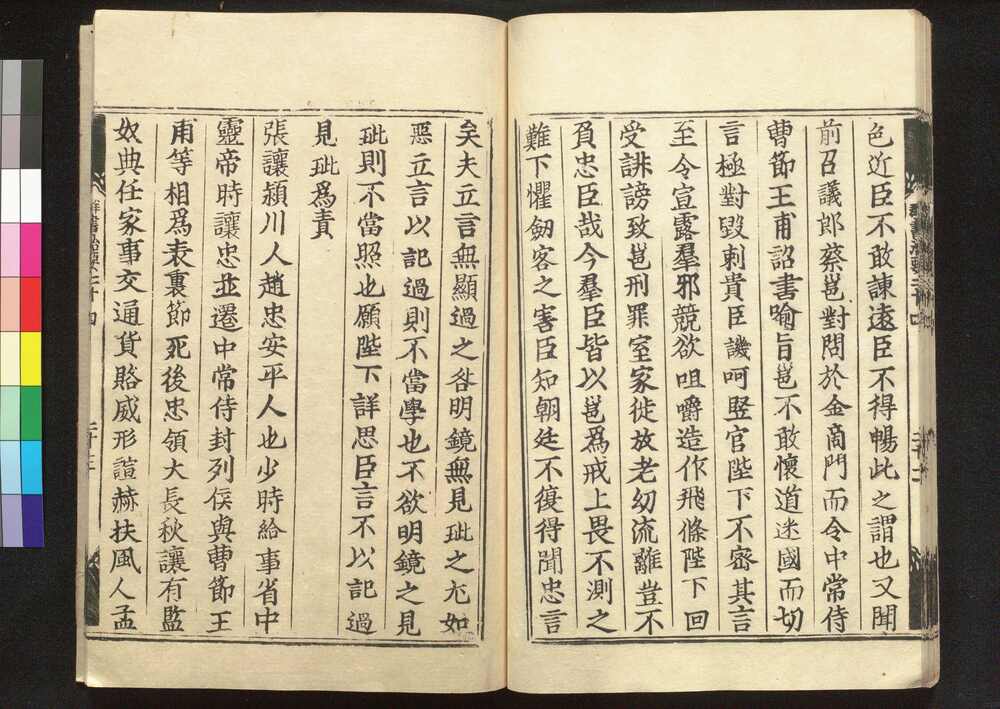 色近臣不敢諫遠臣不得暢此之謂也又聞
前召議郎蔡邕對問於金商門而令中常侍
曹節王甫詔書喻旨邕不敢懷道迷國而切
言極對毀刺貴臣譏呵竪官陛下不密其言
至令宣露羣邪競欲咀嚼造作飛條陛下回
受誹謗致邕刑罪室家徙放老幼流離豈不
負忠臣哉今羣臣皆以邕爲戒上畏不測之
難下懼劒客之害臣知朝廷不復得聞忠言
矣夫立言無顯過之咎明鏡無見玼之尤如
惡立言以記過則不當學也不欲明鏡之見
玼則不當照也願陛下詳思臣言不以記過
見玼爲責
張讓潁川人趙忠安平人也少時給事省中
靈帝時讓忠並遷中常侍封列侯與曹節王
甫等相爲表裏節死後忠領大長秋讓有監
奴典任家事交通貨賂威形諠赫扶風人孟
群書治要二十四
二十二
群書治要二十四
二十三